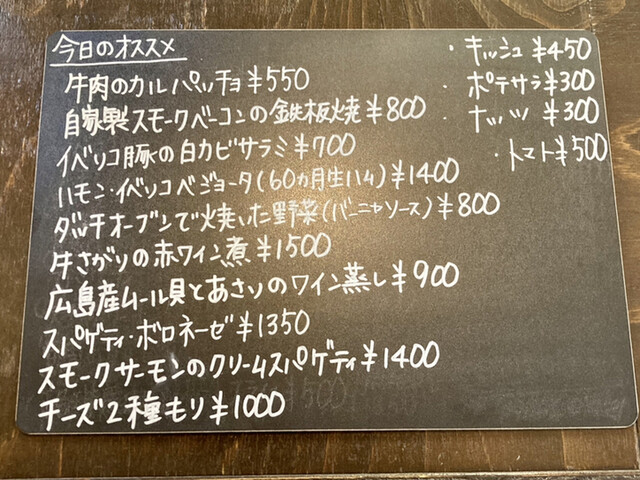 今日のオススメ
牛肉のカルパッチョ¥550
自家製スモークベーコンの鉄板焼¥800
イベリコ豚の白カビサラミ¥700
ハモン・イベリコベジョータ(60ヵ月生ハム)¥1400
ダッチオーブンで焼いた野菜(バーニャソース)¥800
牛さがりの赤ワイン煮¥1500
広島産ムール貝とあさりのワイン蒸し¥900
スパゲティ・ボロネーゼ¥1350
スモークサーモンのクリームスパゲティ¥1400
チーズ2種もり¥1000
・キッシュ¥450
・ポテサラ¥300
・ナッツ¥300
・トマト¥500